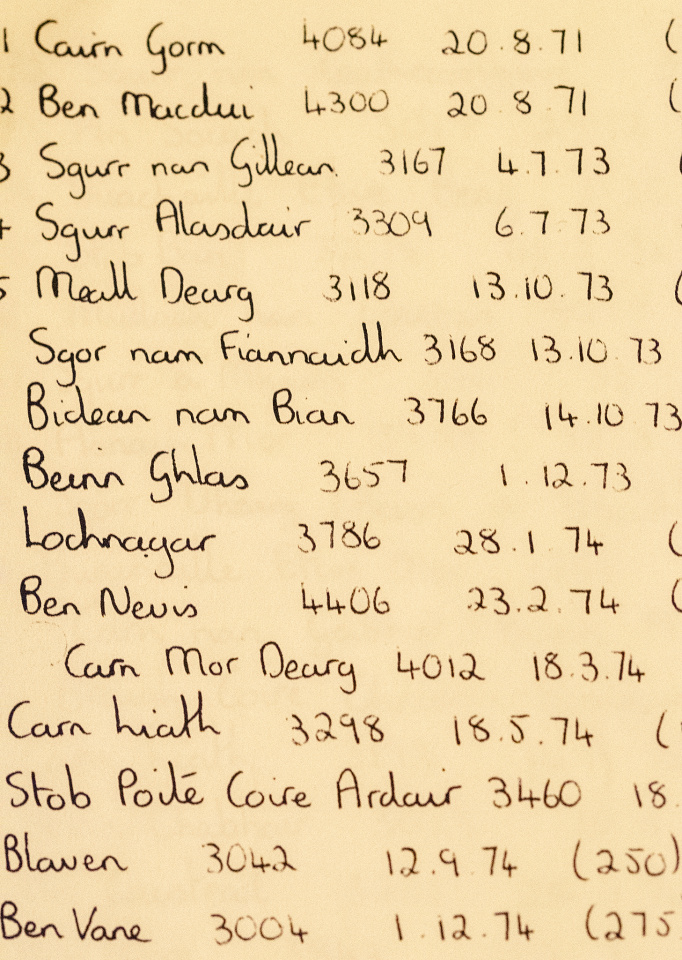 1 Cairn Gorm 4084 20.8.71 (
2 Ben Macdui 4300 20.8.71 (
3 Sgurr nan Gillean. 3167 4.7.73 (
4 Sgurr Alasdair 3309 6.7.73
5 Meall Dearg 3118 13.10.73 (
Sgor nam Fiannaidh 3168 13.10 73
Bidean nam Bian 3766 14.10 73
Beinn Ghlas 3657 1.12.73
Lochnagar 3786 28.1.74 (
Ben Nevis 4406 23.2.74 (
Carn Mor Dearg 4012 18.3.74
Carn Liath 3298 18.5.74 (
Stob Poité Coire Ardair 3460 18.
Blaven 3042 12.9.74 (250)
Ben Vane 3004 1.12.74 (275